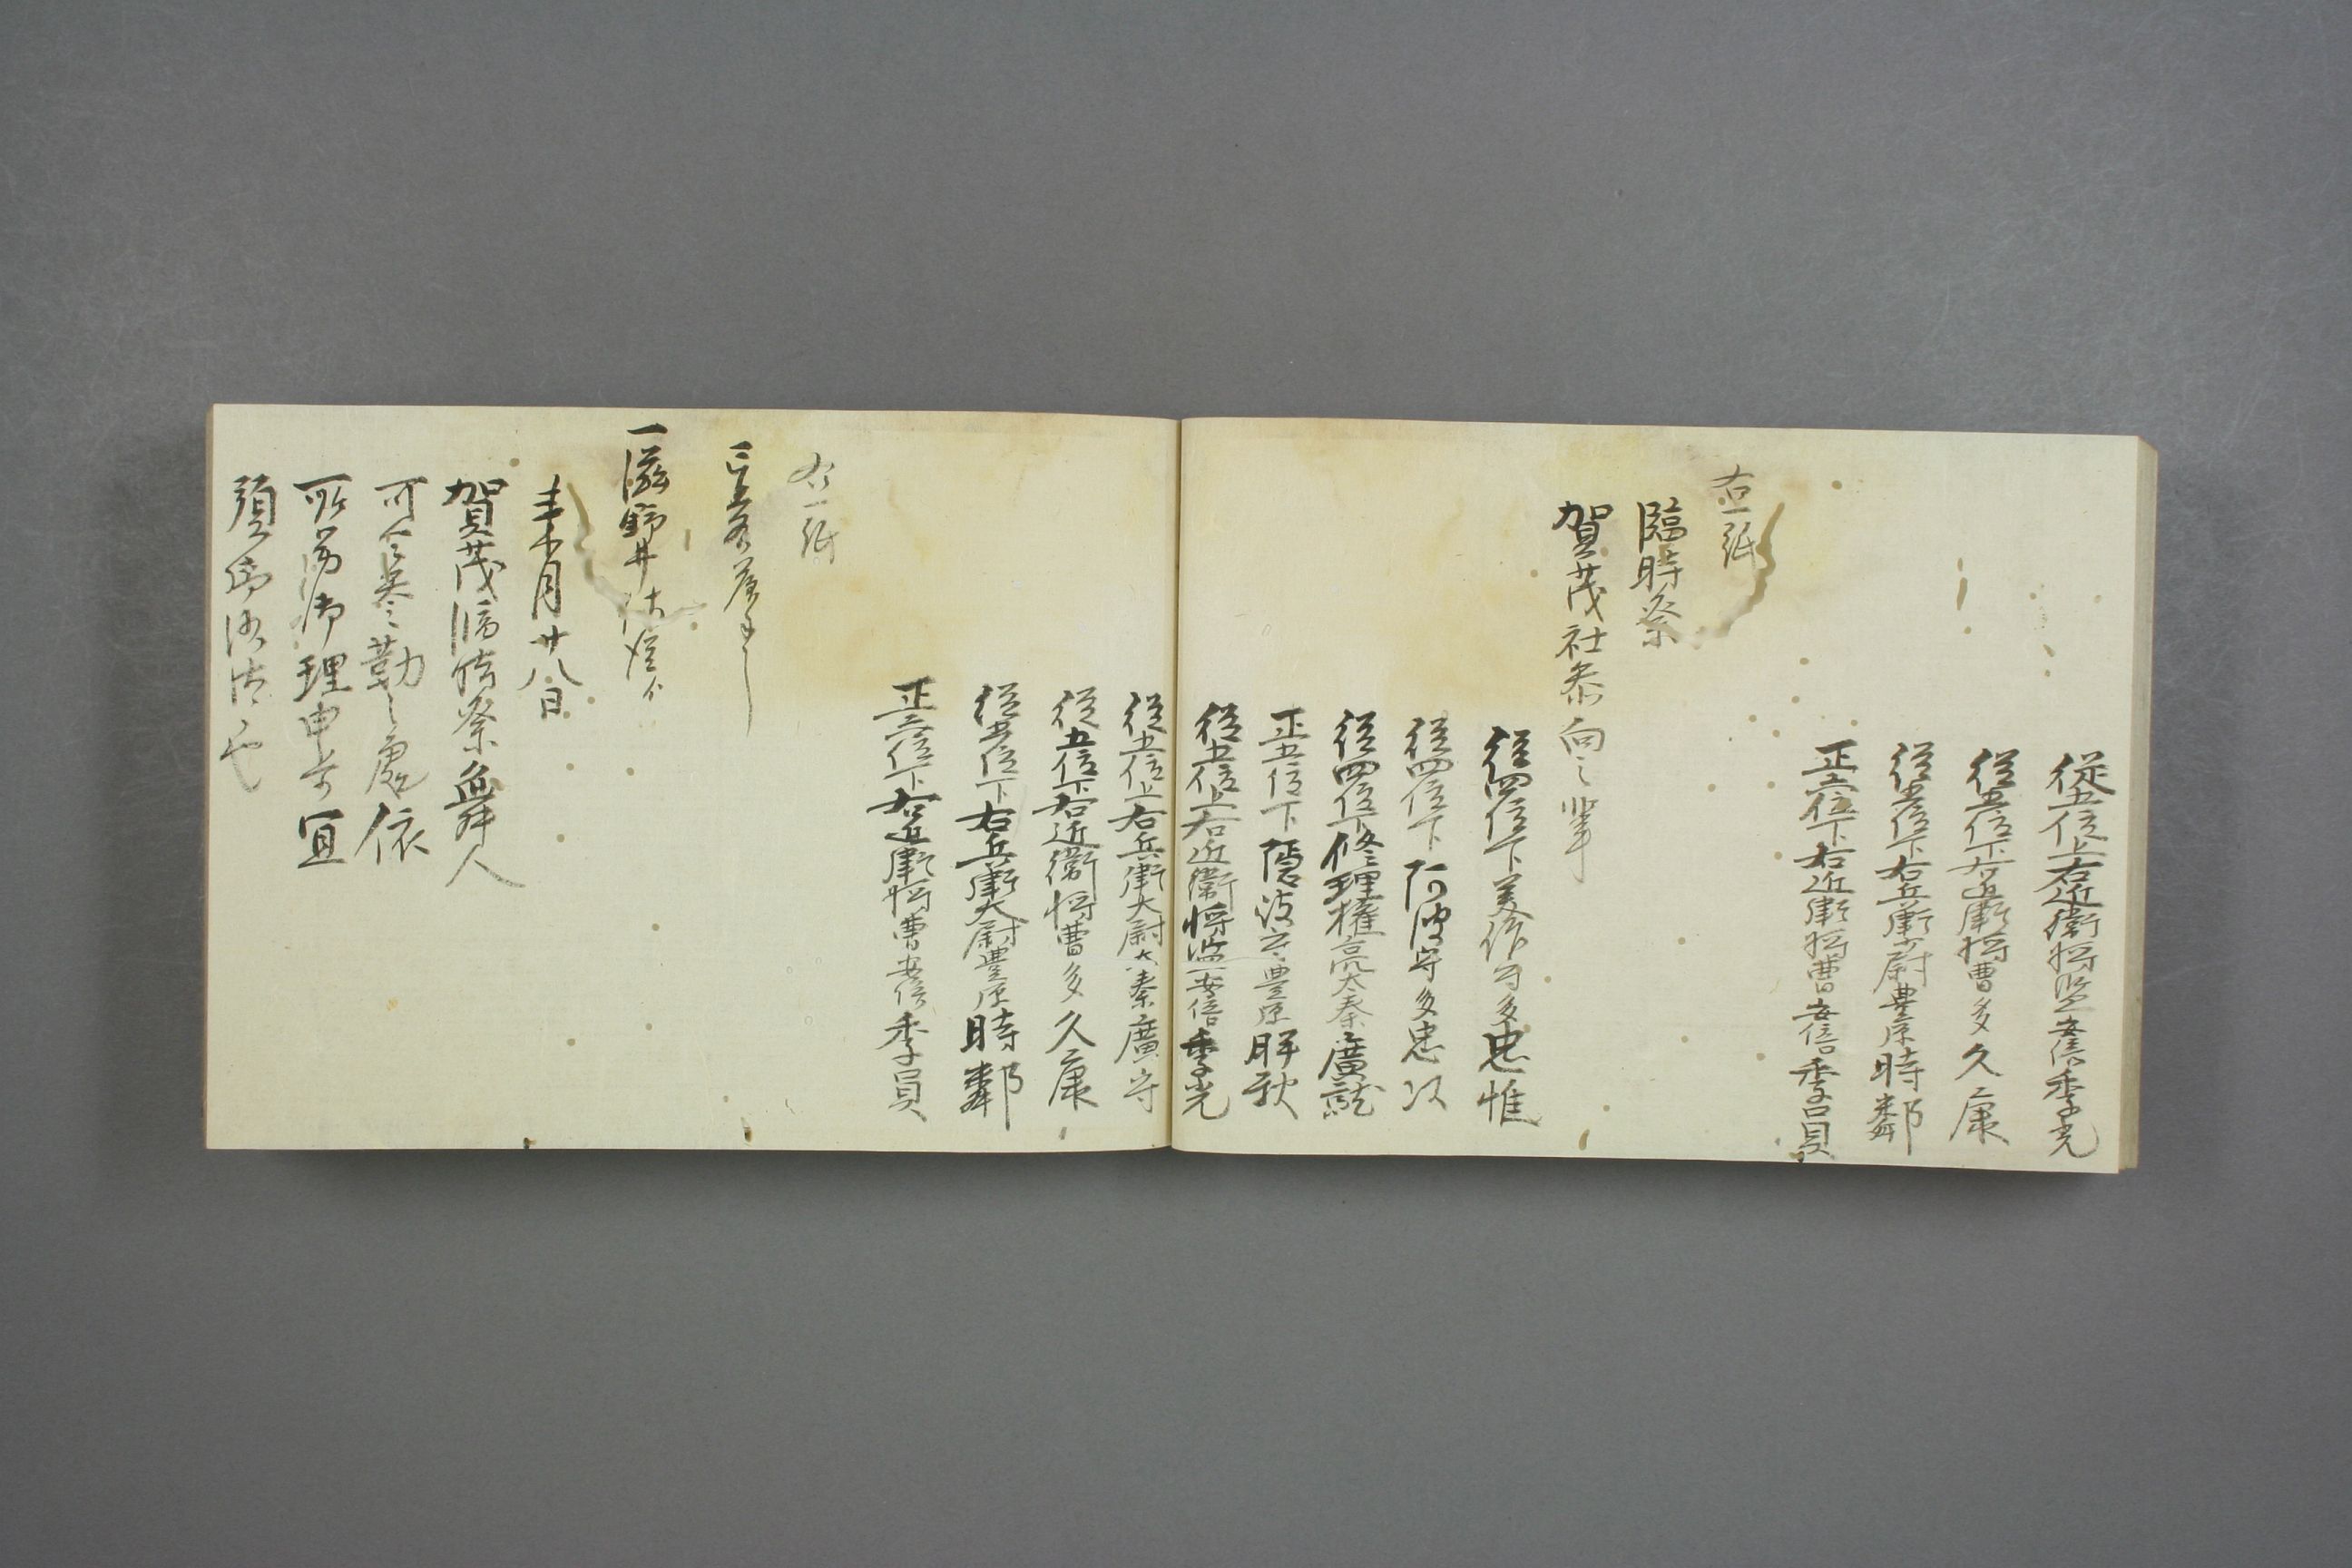 従五位上右近衛将監安倍季光
従五位下右近衛将曹多久康
従五位下右兵衛少尉豊原時鄰
正六位下右近衛将曹安倍季員
右一紙
臨時祭
賀茂社参向之輩
従四位下美作守多忠惟
従四位下阿波守多忠以
従四位下修理権亮太秦廣
正五位下隠波守豊原秋
従五位上右近衛将監安倍季光
従五位上右兵衛大尉太秦廣守
従五位下右近衛将曹多久康
従五位下右兵衛大尉豊原時鄰
正六位下右近衛将曹安倍季員
右一紙
一滋野井
来月廿八日
賀茂臨時祭舞人
可令参勤之處依
所労御理申上宜
預御沙汰也